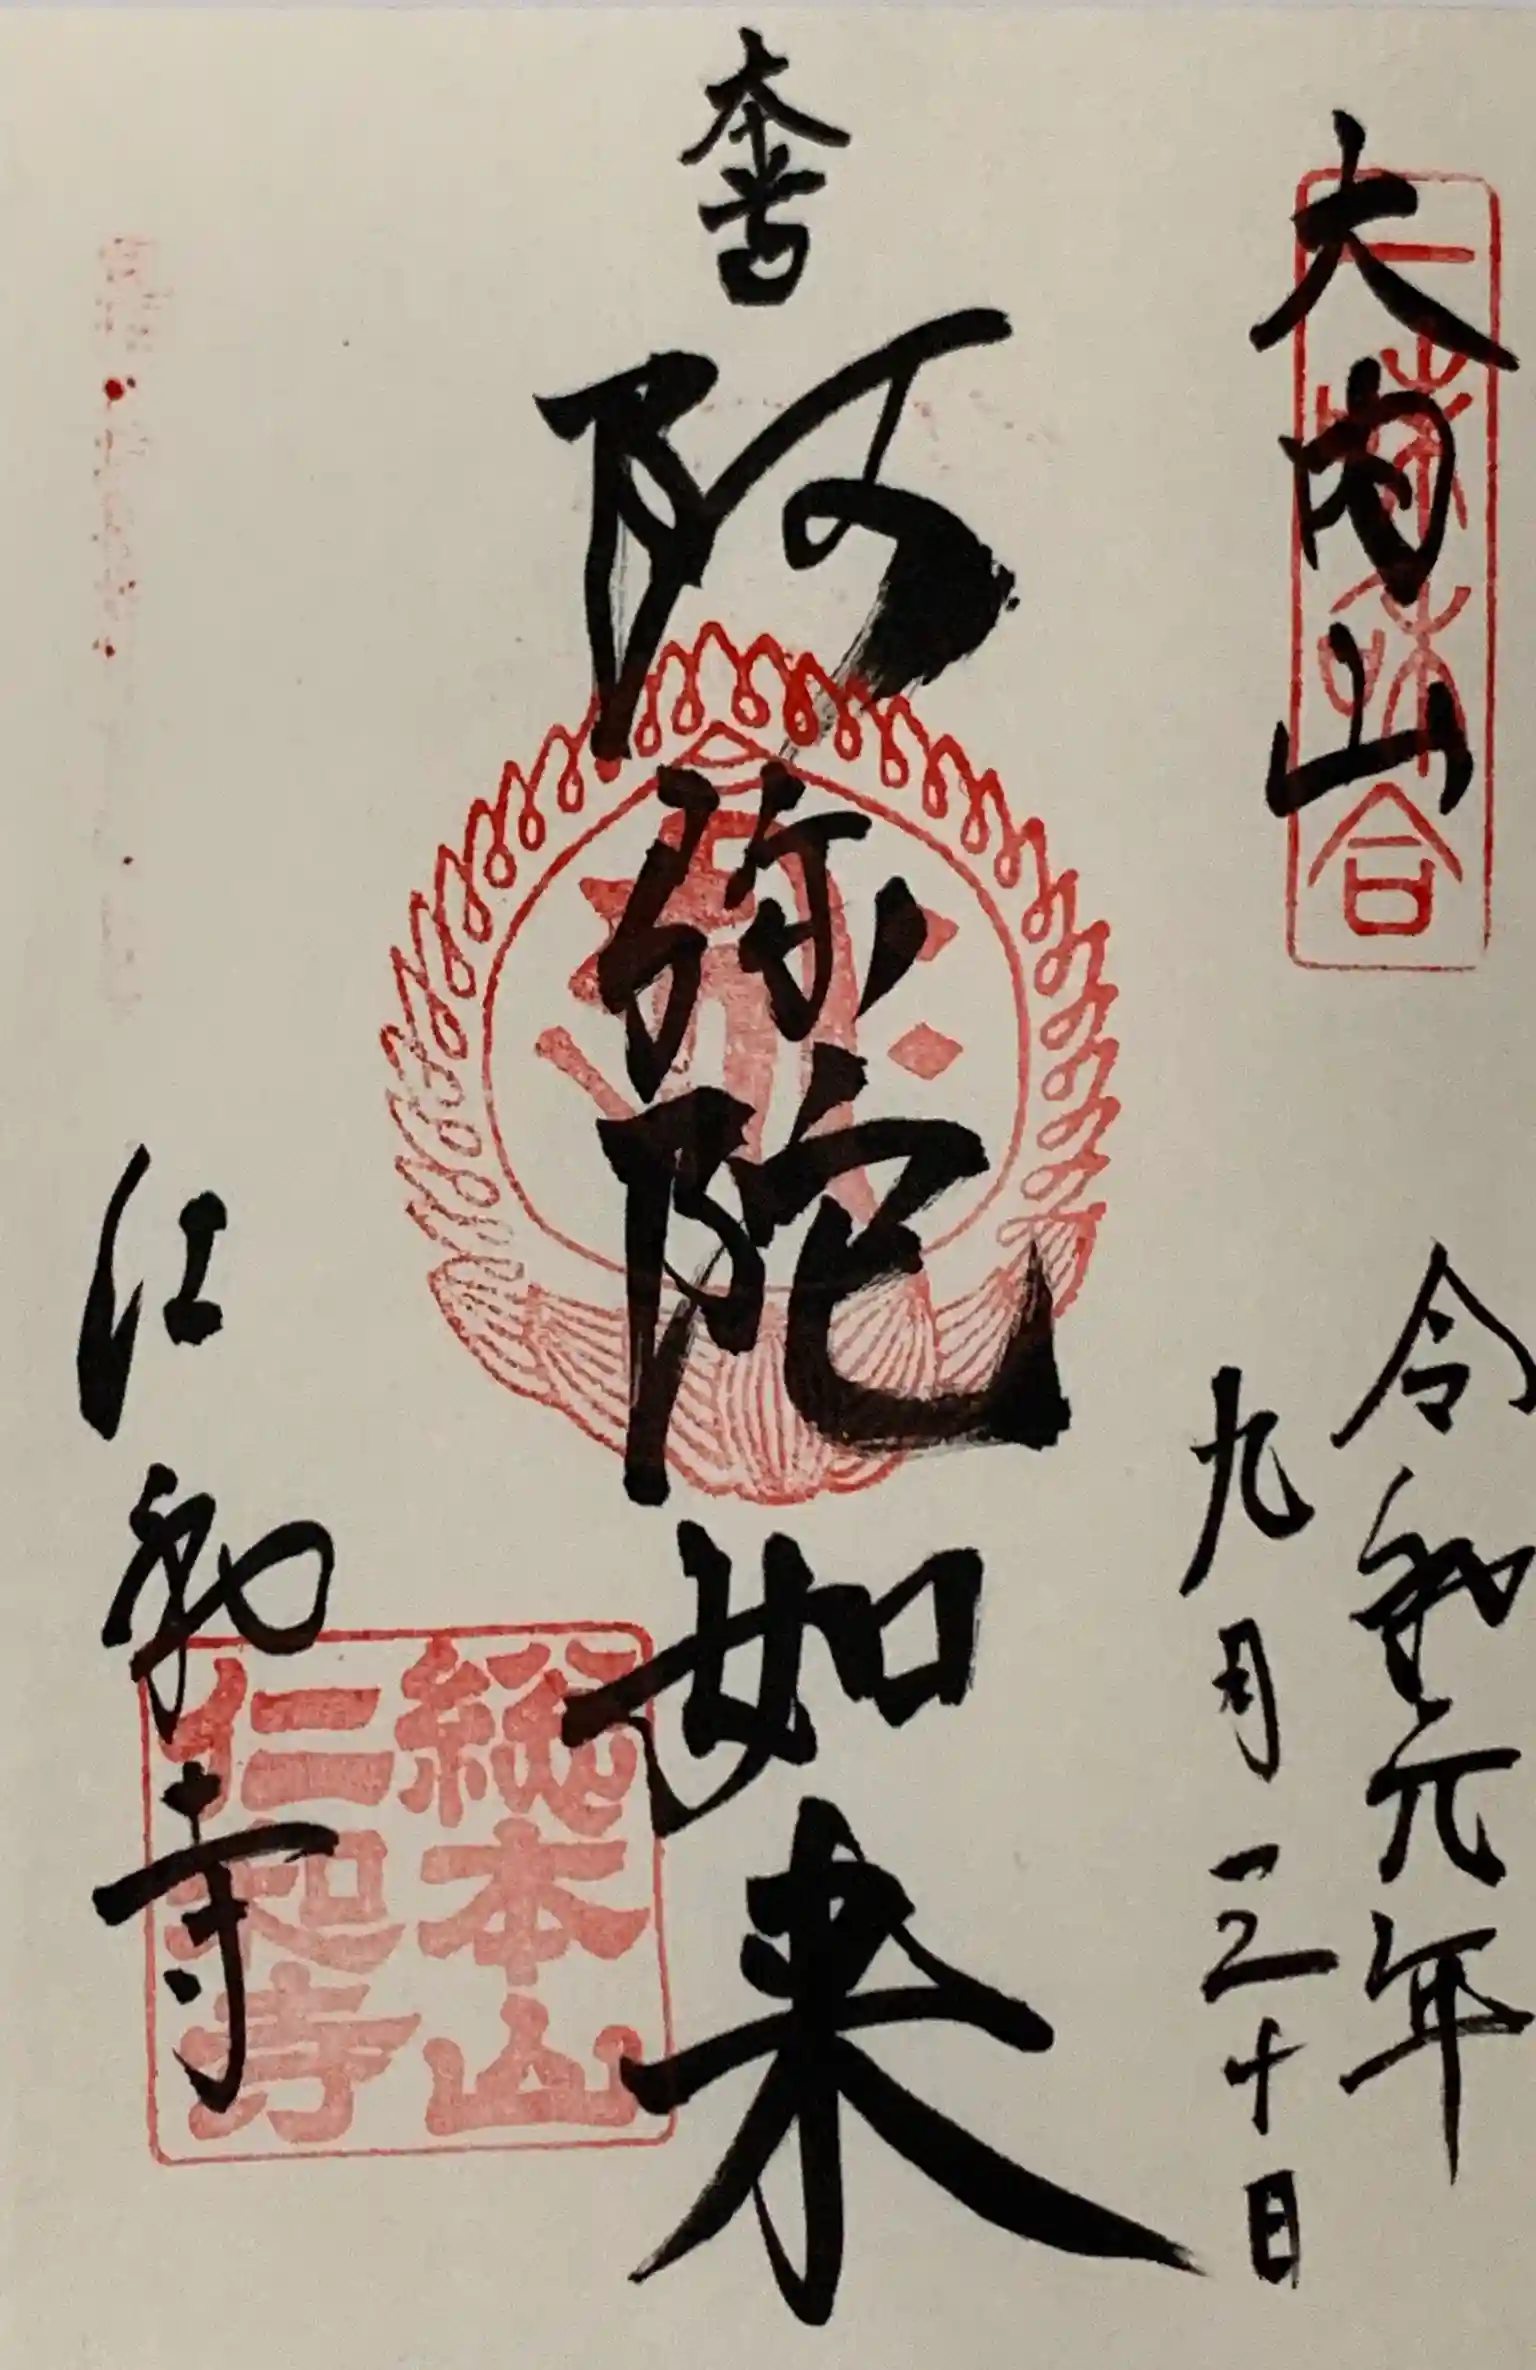 大内山
令和元年
九月三十日
本尊
阿弥陀如来
総本山
仁和寺
仁和寺